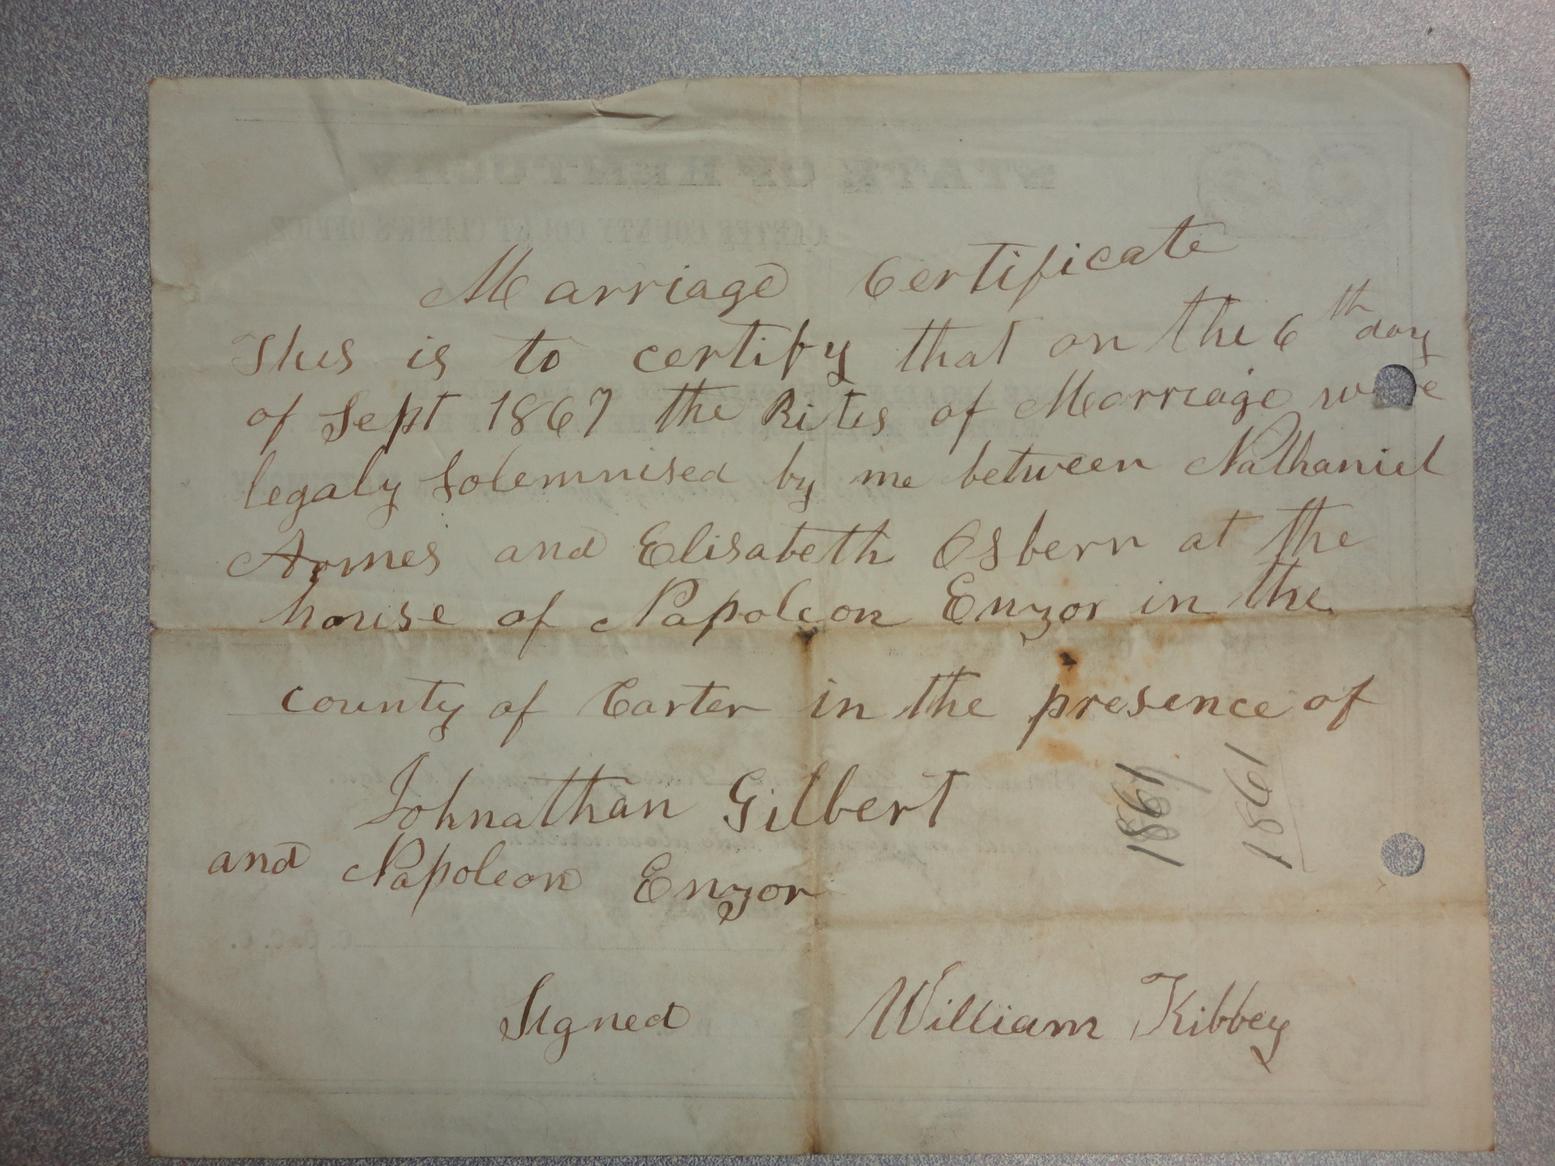 Marriage Certificate
This is to certify that on the 6th day
of Sept 1867 the Rites of Marriage were
legaly Solemnised by me between Nathaniel
Armes and Elisabeth Osbern at the
house of Napoleon Enzor in the
county of Carter in the presence of
Johnathan Gilbert
and Napoleon Enzor
Signed William Kibbey
1867
1867
STATE OF KENTUCKY
CARTER COUNTY COURT CLERK'S OFFICE